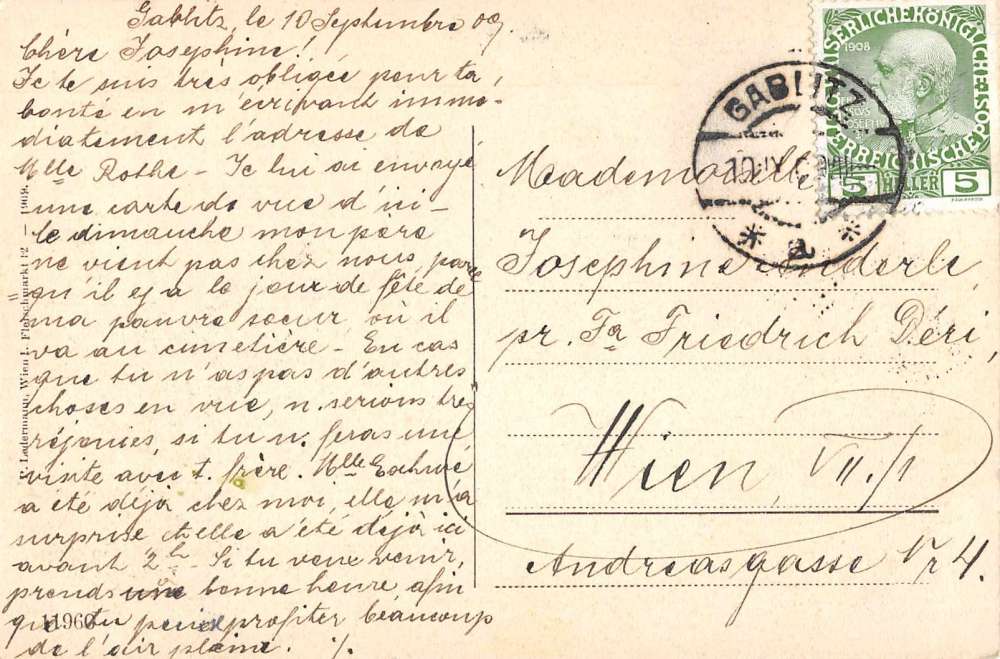 Gablitz, le 10 Septembre 09.
Chère Josephine!
Je te suis très obligée pour ta
bonté en m'écrivant immé-
diatement l'adresse de
Mlle Rothe - Je lui ai envoyé
une carte de vue d'ici -
le dimauche mon père
ne vient pas chez nous parce
qu'il y a le jour de fête de
ma pauvre soeur, où il
va au cimetière - En cas
que tu n'as pas d'autres
choses en vue, n. serions très
réjouies, si tu n. feras une
visite avec t. frère. Mlle
a été déjà chez moi, elle m'a
surprise et elle a été déjà ici
avant 2h - Si tu veux venir,
prends une bonne heure, afin
que tu peux profiter beaucoup
de l'air pleine. ./.
11960
P. Ledermann, Wien I. Fleischmarkt 12 - 1909.
Meademoiselle
Josephine Anderle
pr. Fr Friedrich Déri,
Wien, VII./1
Andreasgasse Nr 4.
GABLITZ
10.IX
* a *
KAISERLICHEKÖNIGLICHE
ÖSTERREICHISCHE
1908
5 HELLER 5